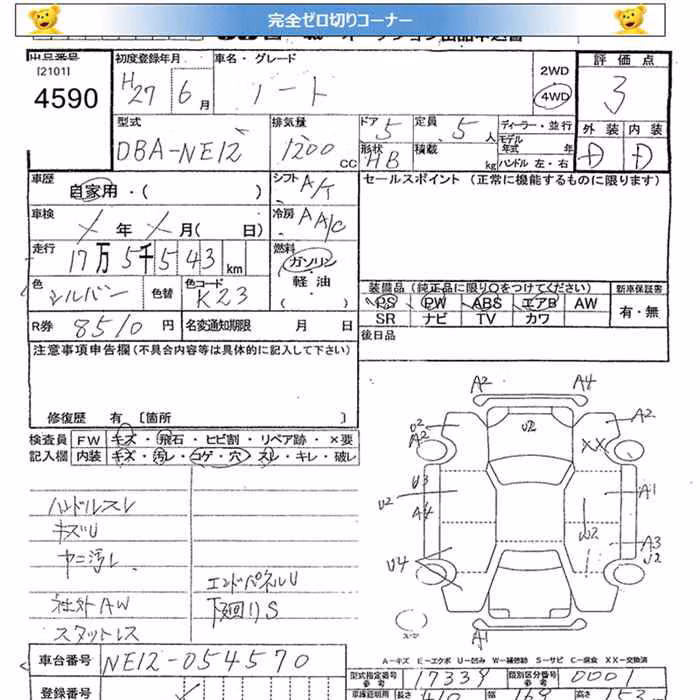 完全ゼロ切りコーナー
出品番号
[2101]
4590
初度登録年月
H27 6月
車名・グレード
ノート
2WD
4WD
評価点
3
外装 内装
D D
型式
DBA-NE12
排気量
1200 CC
ドア 5
形状 HB
定員 5人
積載 kg
ディーラー・並行
モデル年式 年
ハンドル 左・右
車歴
自家用・( )
シフト A/T
セールスポイント (正常に機能するものに限ります)
車検
年 月( 日)
冷房 AA/C
走行
17万5千543km
燃料
ガソリン
軽油
( )
色
シルバー
色替
色コード
K23
装備品(純正品に限り○をつけてください)
新車保証書
PS PW ABS エアB AW
SR ナビ TV カワ
有・無
R券 8510円
名変通知期限 月 日
後日品
注意事項申告欄(不具合内容等は具体的に記入して下さい)
修復歴 有 [箇所 ]
検査員
記入欄
FW キズ・飛石・ヒビ割・リペア跡・×要
内装 キズ・汚レ・コゲ・穴・スレ・キレ・破レ
ハンドルスレ
キズU
ヤニ汚レ
社外AW
スタットレス
エンドパネルU
下廻りS
A2 A4
U2 A2
U2
A2
XX
U3
U2
A4
A1
W2
A3
U2
U4
A1
A-キズ E-エクボ U-凹み W-補修跡 S-サビ C-腐食 XX-交換済
車台番号 NE12-054570
登録番号
型式指定番号 参考 17339
類別区分番号 参考 0001
車庫証明用 長さ 410 幅 169 高さ 153